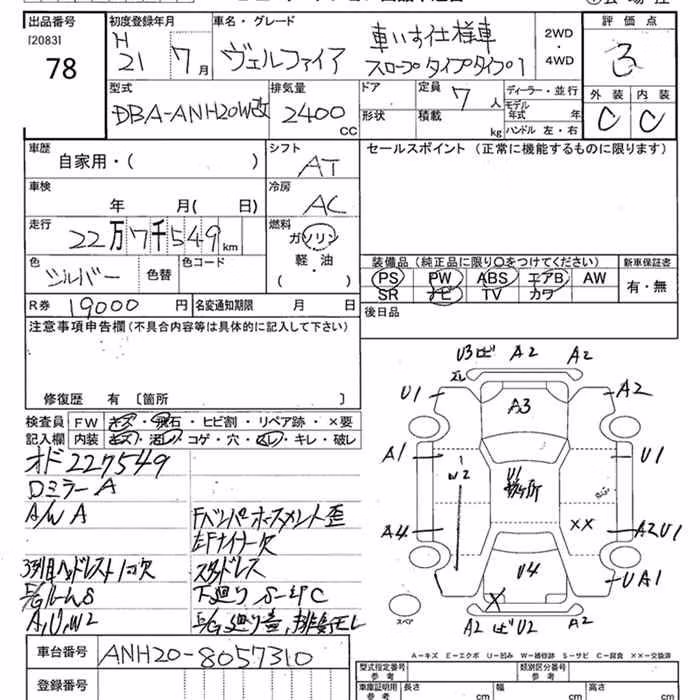 出品番号 初度登録年月 車名・グレード 2WD・4WD 評価点
[2083] 78 H 21 7月 ヴェルファイア 車いす仕様車 スロープタイプタイプ1 3
型式 排気量 ドア 定員 7人 ディーラー・並行 外装 内装
DBA-ANH20W改 2400 CC 形状 積載 kg モデル年式 年 ハンドル 左・右 C C
車歴 シフト セールスポイント (正常に機能するものに限ります)
自家用・( ) AT
車検 冷房
年 月( 日) AC
走行 燃料
22万7千549km ガソリン
色 色替 色コード 軽・油 装備品 (純正品に限り○をつけてください) 新車保証書
シルバー ( ) PS PW ABS エアB AW 有・無
R券 19000円 名変通知期限 月 日 SR ナビ TV カワ
注意事項申告欄(不具合内容等は具体的に記入して下さい) 後日品
修復歴 有 〔箇所 〕
検査員 FW キズ・飛石・ヒビ割・リペア跡・×要
記入欄 内装 キズ・汚レ・コゲ・穴・スレ・キレ・破レ
オド 227549
Dミラー A
A/W A Fバンパーホースメント歪
左Fナイナー欠
3列目ヘッドレスト1コ欠 スタッドレス
下廻り S-EPC
A,U,W2
U3 ヒビ A2 A2
スレ
U1 A3 A2
A1 W2 U1 U1
A4 XX A2U1
U4 UA1
X
スペア A2 ヒビ U2
A－キズ E－エクボ U－凹み W－補修跡 S－サビ C－腐食 XX－交換済
車台番号 ANH20-8057310
登録番号
型式指定番号 参考 類別区分番号 参考
車庫証明用 参考 長さ cm 幅 cm 高さ cm